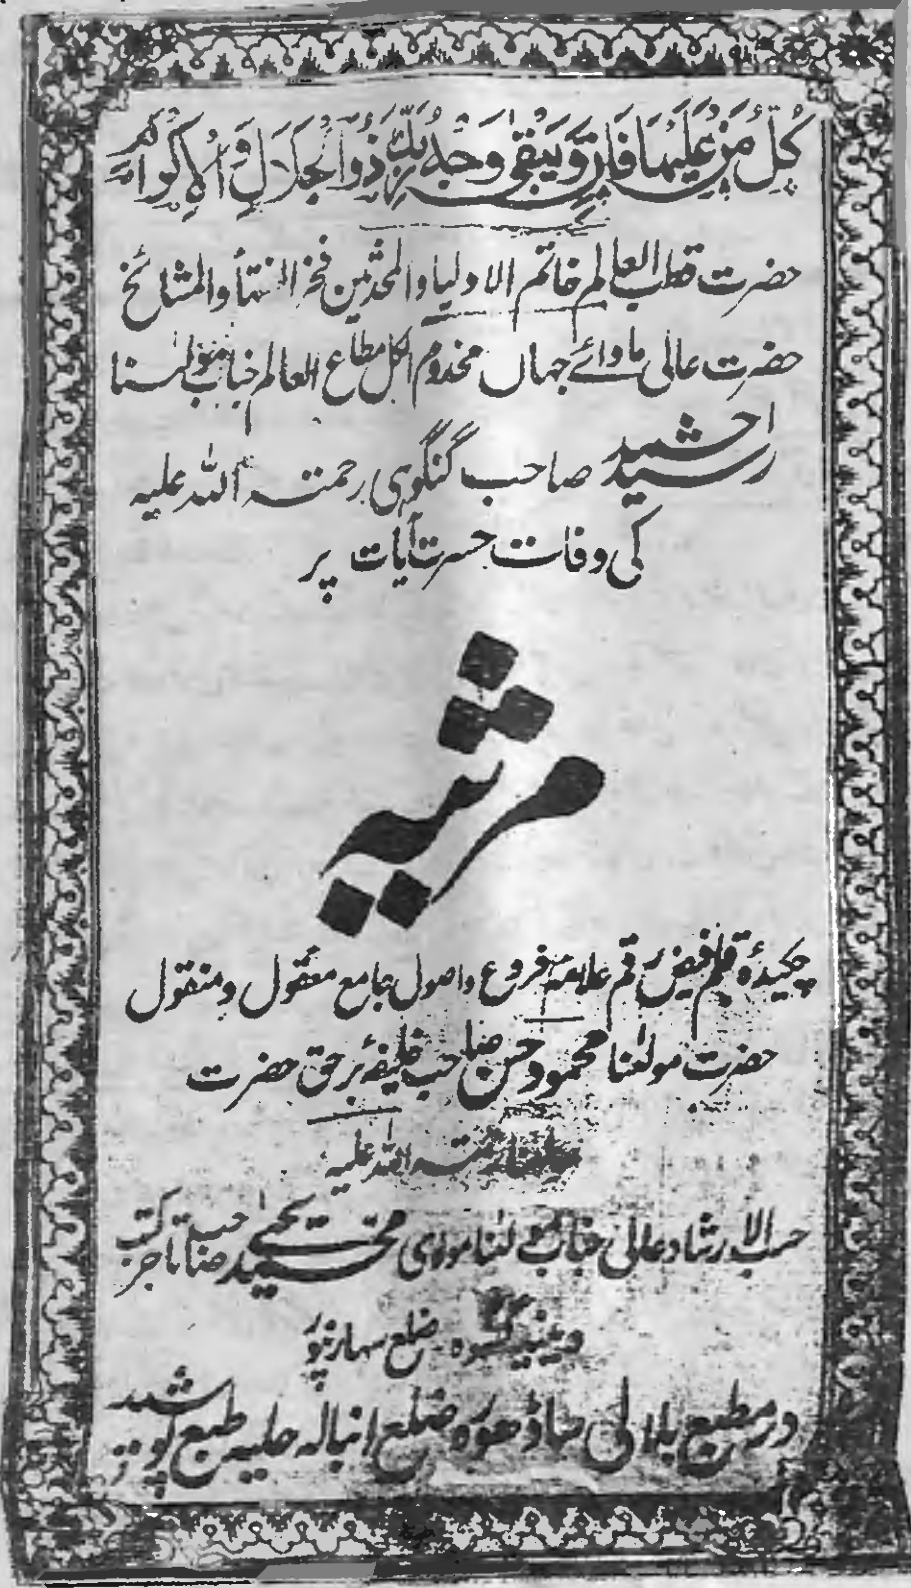 كُلُّ مَنْ عَلَيْهَا فَانٍ وَيَبْقَىٰ وَجْهُ رَبِّكَ ذُو الْجَلَالِ وَالْإِكْرَامِ
حضرت قطب العالم خاتم الاولیاء والمحدثین فخر الفقہاء والمشائخ
حضرت عالی ماوائے جہاں مخدوم الکل مطاع العالم جناب مولٰنا
رشید احمد صاحب گنگوہی رحمتہ اللہ علیہ
کی وفات حسرت آیات پر
مرثیہ
چکیدۂ قلم فیض رقم علامہ فروع و اصول جامع معقول و منقول
حضرت مولٰنا محمود حسن صاحب خلیفۂ برحق حضرت
رحمتہ اللہ علیہ
حسب الارشاد عالی جناب مولٰنا مولوی محمد یحییٰ صاحب تاجر کتب
دینیہ گنگوہ ضلع سہارنپور
در مطبع بلالی ساڈھورہ ضلع انبالہ حلیہ طبع پوشید